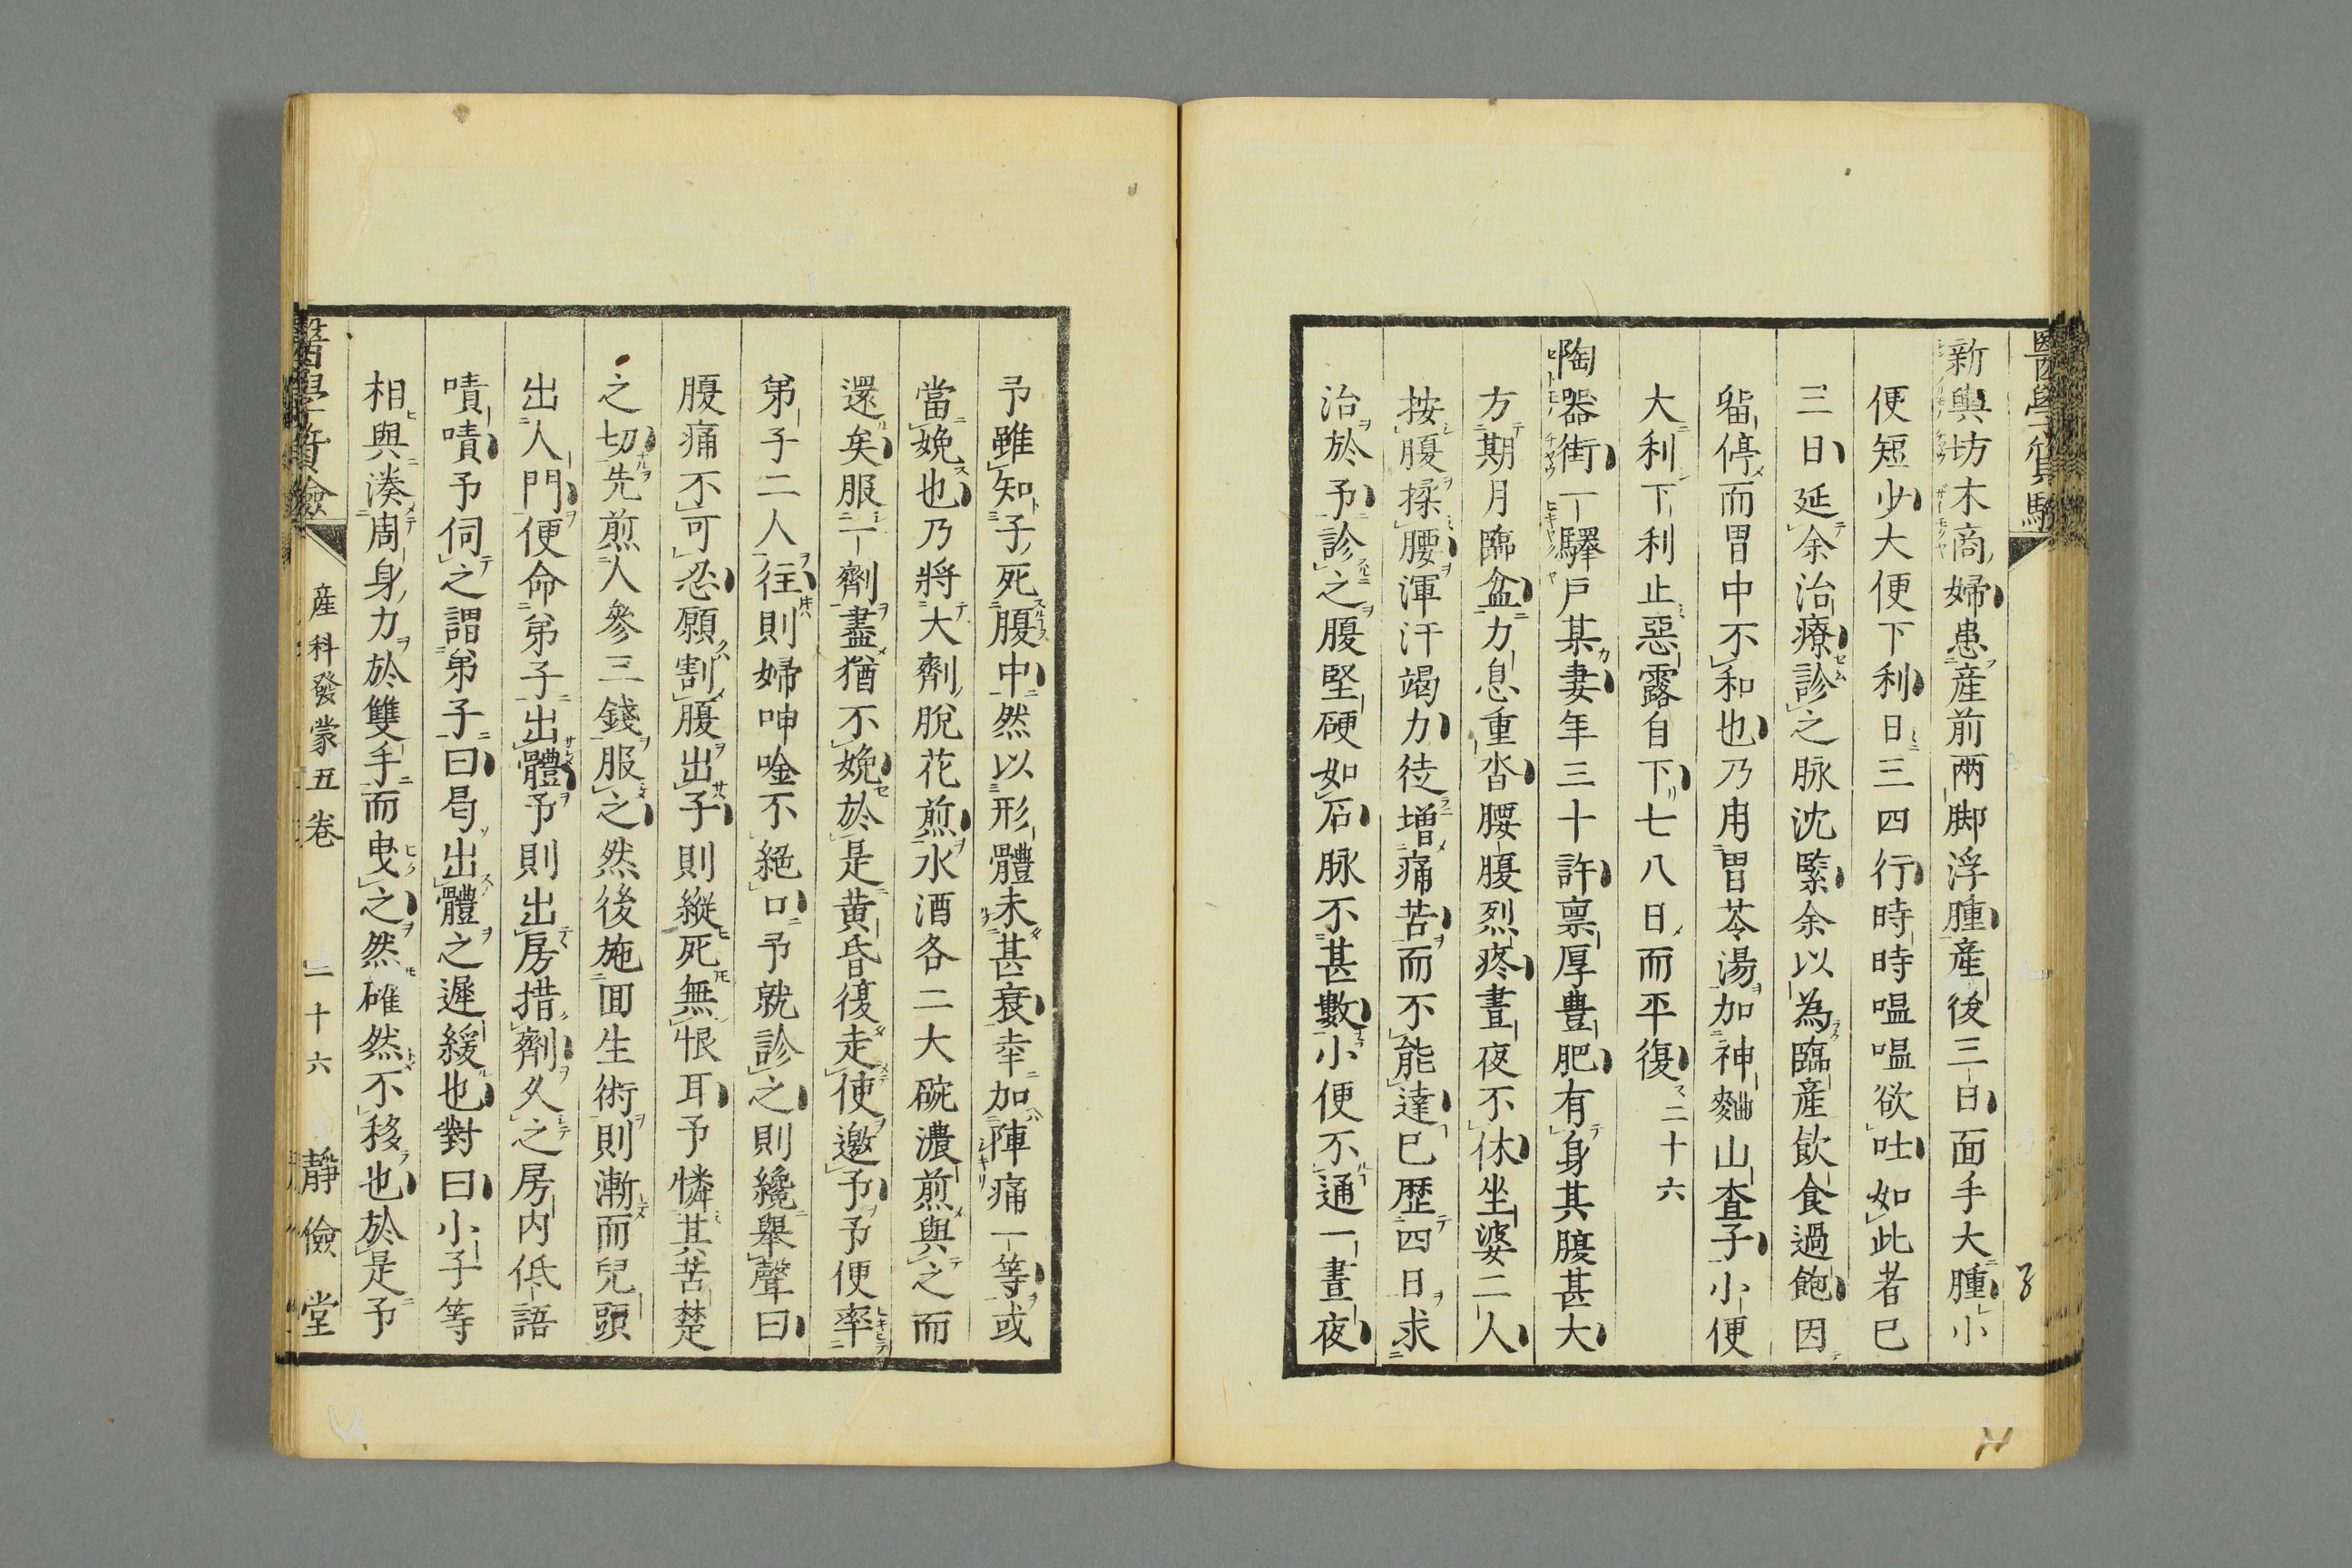 醫學質驗
新輿坊木商婦患産前兩脚浮腫産後三日面手大腫小
便短少大便下利日三四行時時嗢嗢欲吐如此者已
三日延余治療診之脉沈緊余以為臨産飲食過飽因
留停而胃中不和也乃用胃苓湯加神麯山査子小便
大利下利止惡露自下七八日而平復 二十六
陶器街一驛戸某妻年三十許禀厚豊肥有身其腹甚大
方期月臨盆力息重沓腰腹烈疼晝夜不休坐婆二人
按腹揉腰渾汗竭力徒增痛苦而不能達已歴四日求
治於予診之腹堅硬如石脉不甚數小便不通一晝夜
予雖知子死腹中然以形體未甚衰幸加陣痛一等或
當娩也乃將大劑脫花煎水酒各二大碗濃煎與之而
還矣服一劑盡猶不娩於是黄昏復走使邀予予便率
弟子二人往則婦呻唫不絕口予就診之則纔舉聲曰
腹痛不可忍願割腹出子則縱死無恨耳予憐其苦楚
之切先煎人參三錢服之然後施回生術則漸而兒頭
出人門便命弟子出體予則出房措劑久之房内低語
嘖嘖予伺之謂弟子曰曷出體之遲緩也對曰小子等
相與湊周身力於雙手而曳之然確然不移也於是予
醫學質驗 産科發蒙五卷 二十六 靜儉堂